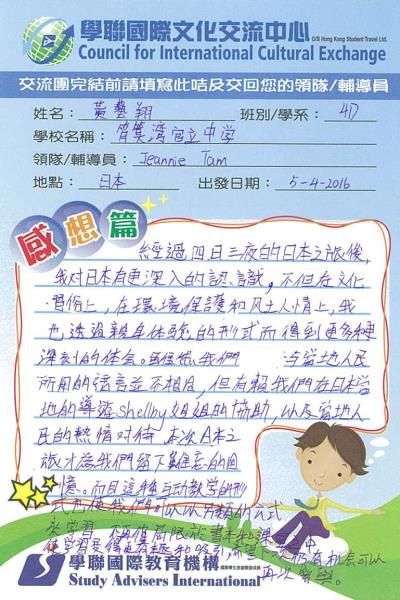 學聯國際文化交流中心 O/B Hong Kong Student Travel Ltd.
Council for International Cultural Exchange
交流團完結前請填寫此咭及交回您的領隊/輔導員
姓名： 黃藝翔 班別/學系： 4D
學校名稱： 筲箕灣官立中學
領隊/輔導員： Jeannie Tam
地點： 日本 出發日期： 5-4-2016
感想篇
經過四日三夜的日本之旅後，
我對日本有更深入的認識，不但在文化
習俗上，在環境保護和風土人情上，我
也透過親身体驗的形式而得到更多種
深刻的体会。 我們 与當地人民
所用的語言並不相同，但有賴我們在日本當
地的導遊 姐姐的協助，以及當地人
民的熱情对待，本次日本之
旅才為我們留下難忘的回
憶。而且這種互动教学的形
式 我們可以以另類的方式
來学習，不再侷限於書本和課室之中
使学習变得更有趣和吸引 希望下次能有机会可以
再次參與。
學聯國際教育機構
Study Advisers International